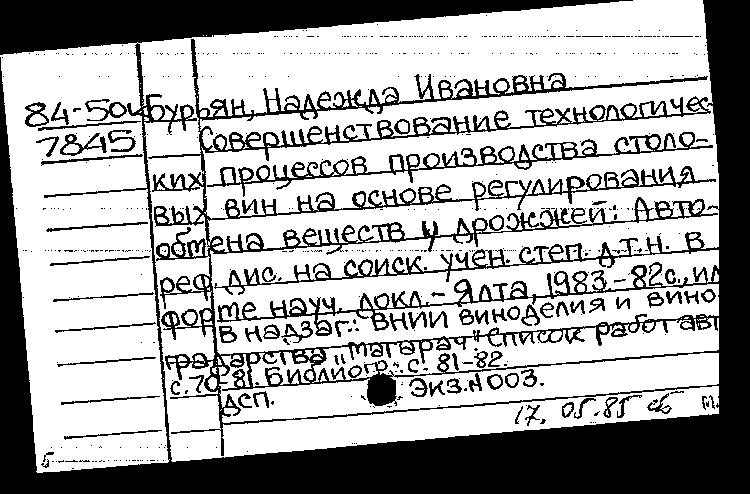 84-50к Бурьян, Надежда Ивановна
7845 Совершенствование технологичес-
ких процессов производства столо-
вых вин на основе регулирования
обмена веществ у дрожжей: Авто-
реф. дис. на соиск. учен. степ. д.т.н. в
форме науч. докл.- Ялта, 1983.-82с., ил
В надзаг.: ВНИИ виноделия и вино-
градарства „Магарач" Список работ авт
с. 70-81. Библиогр.: с. 81-82.
Дсп. Экз.N003.
17. 05.85